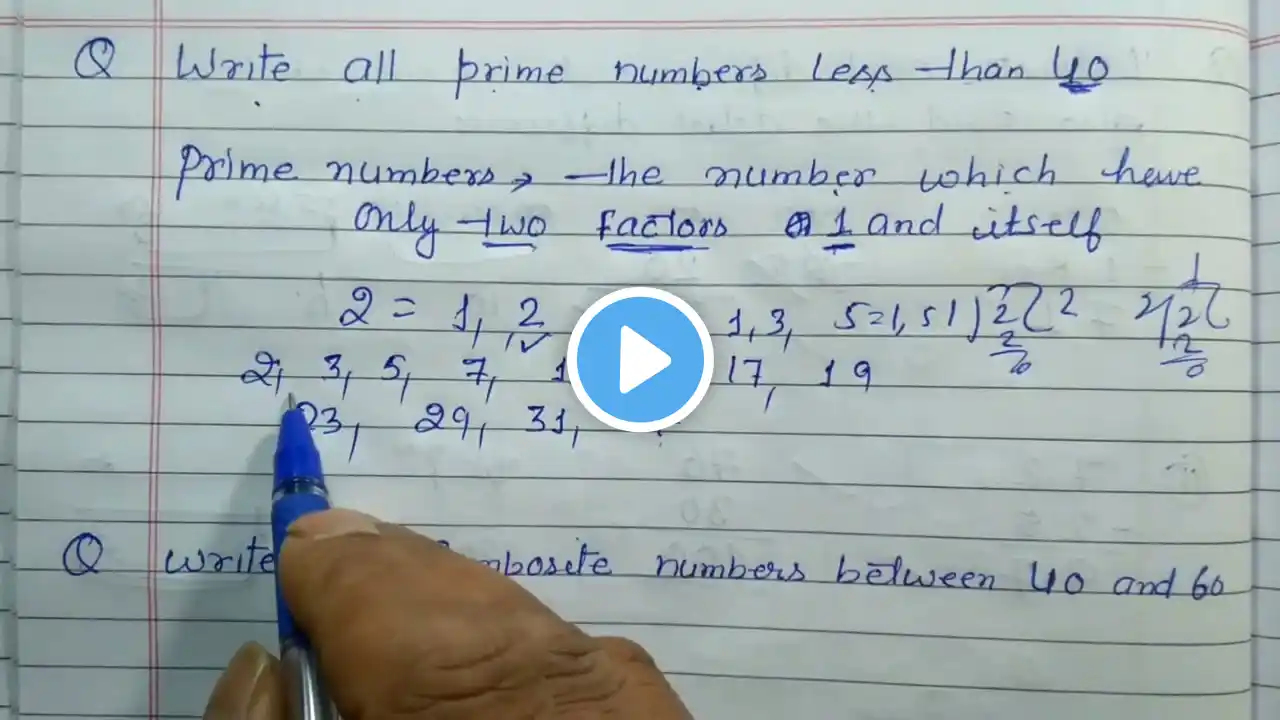 Q Write all prime numbers less than 40
Prime numbers → the number which have
only two factors 1 and itself
2 = 1, 2 1, 3, 5=1, 5 1)2(2 2)2(1
2 2
0 0
2, 3, 5, 7, 17, 19
23, 29, 31,
Q Write numbers between 40 and 60